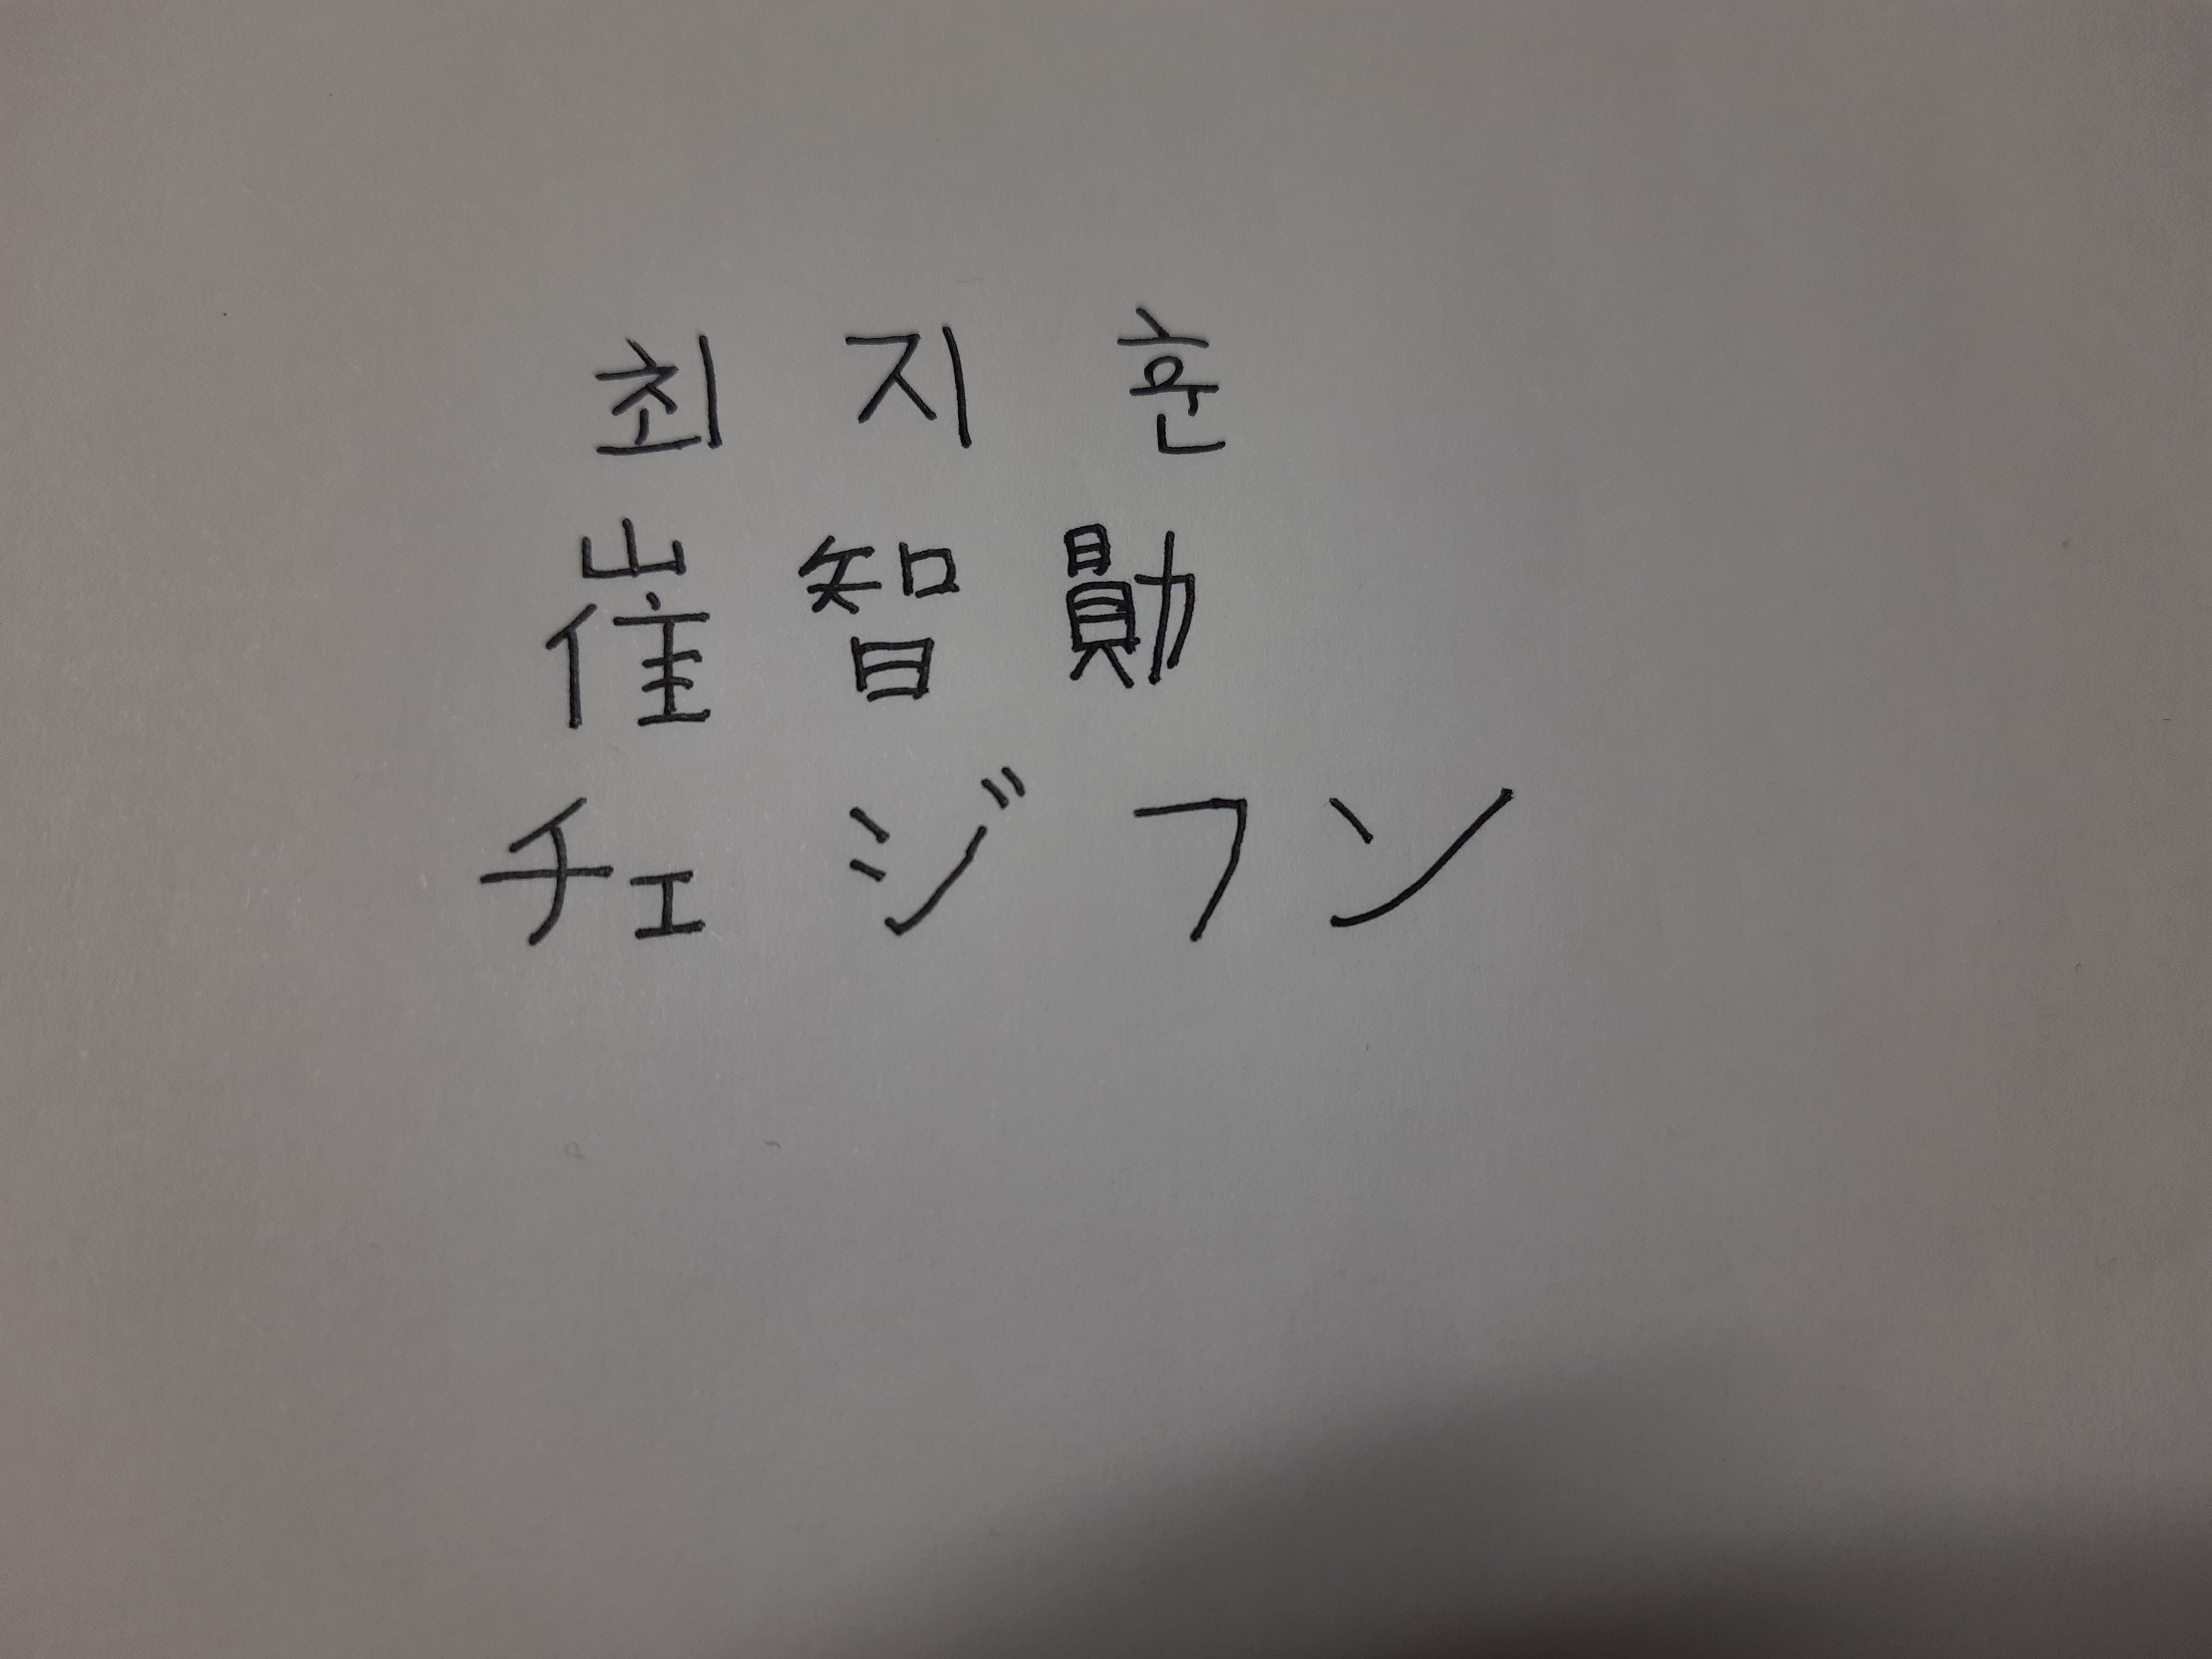 최 지 훈
崔 智 勛
チェ ジ フン